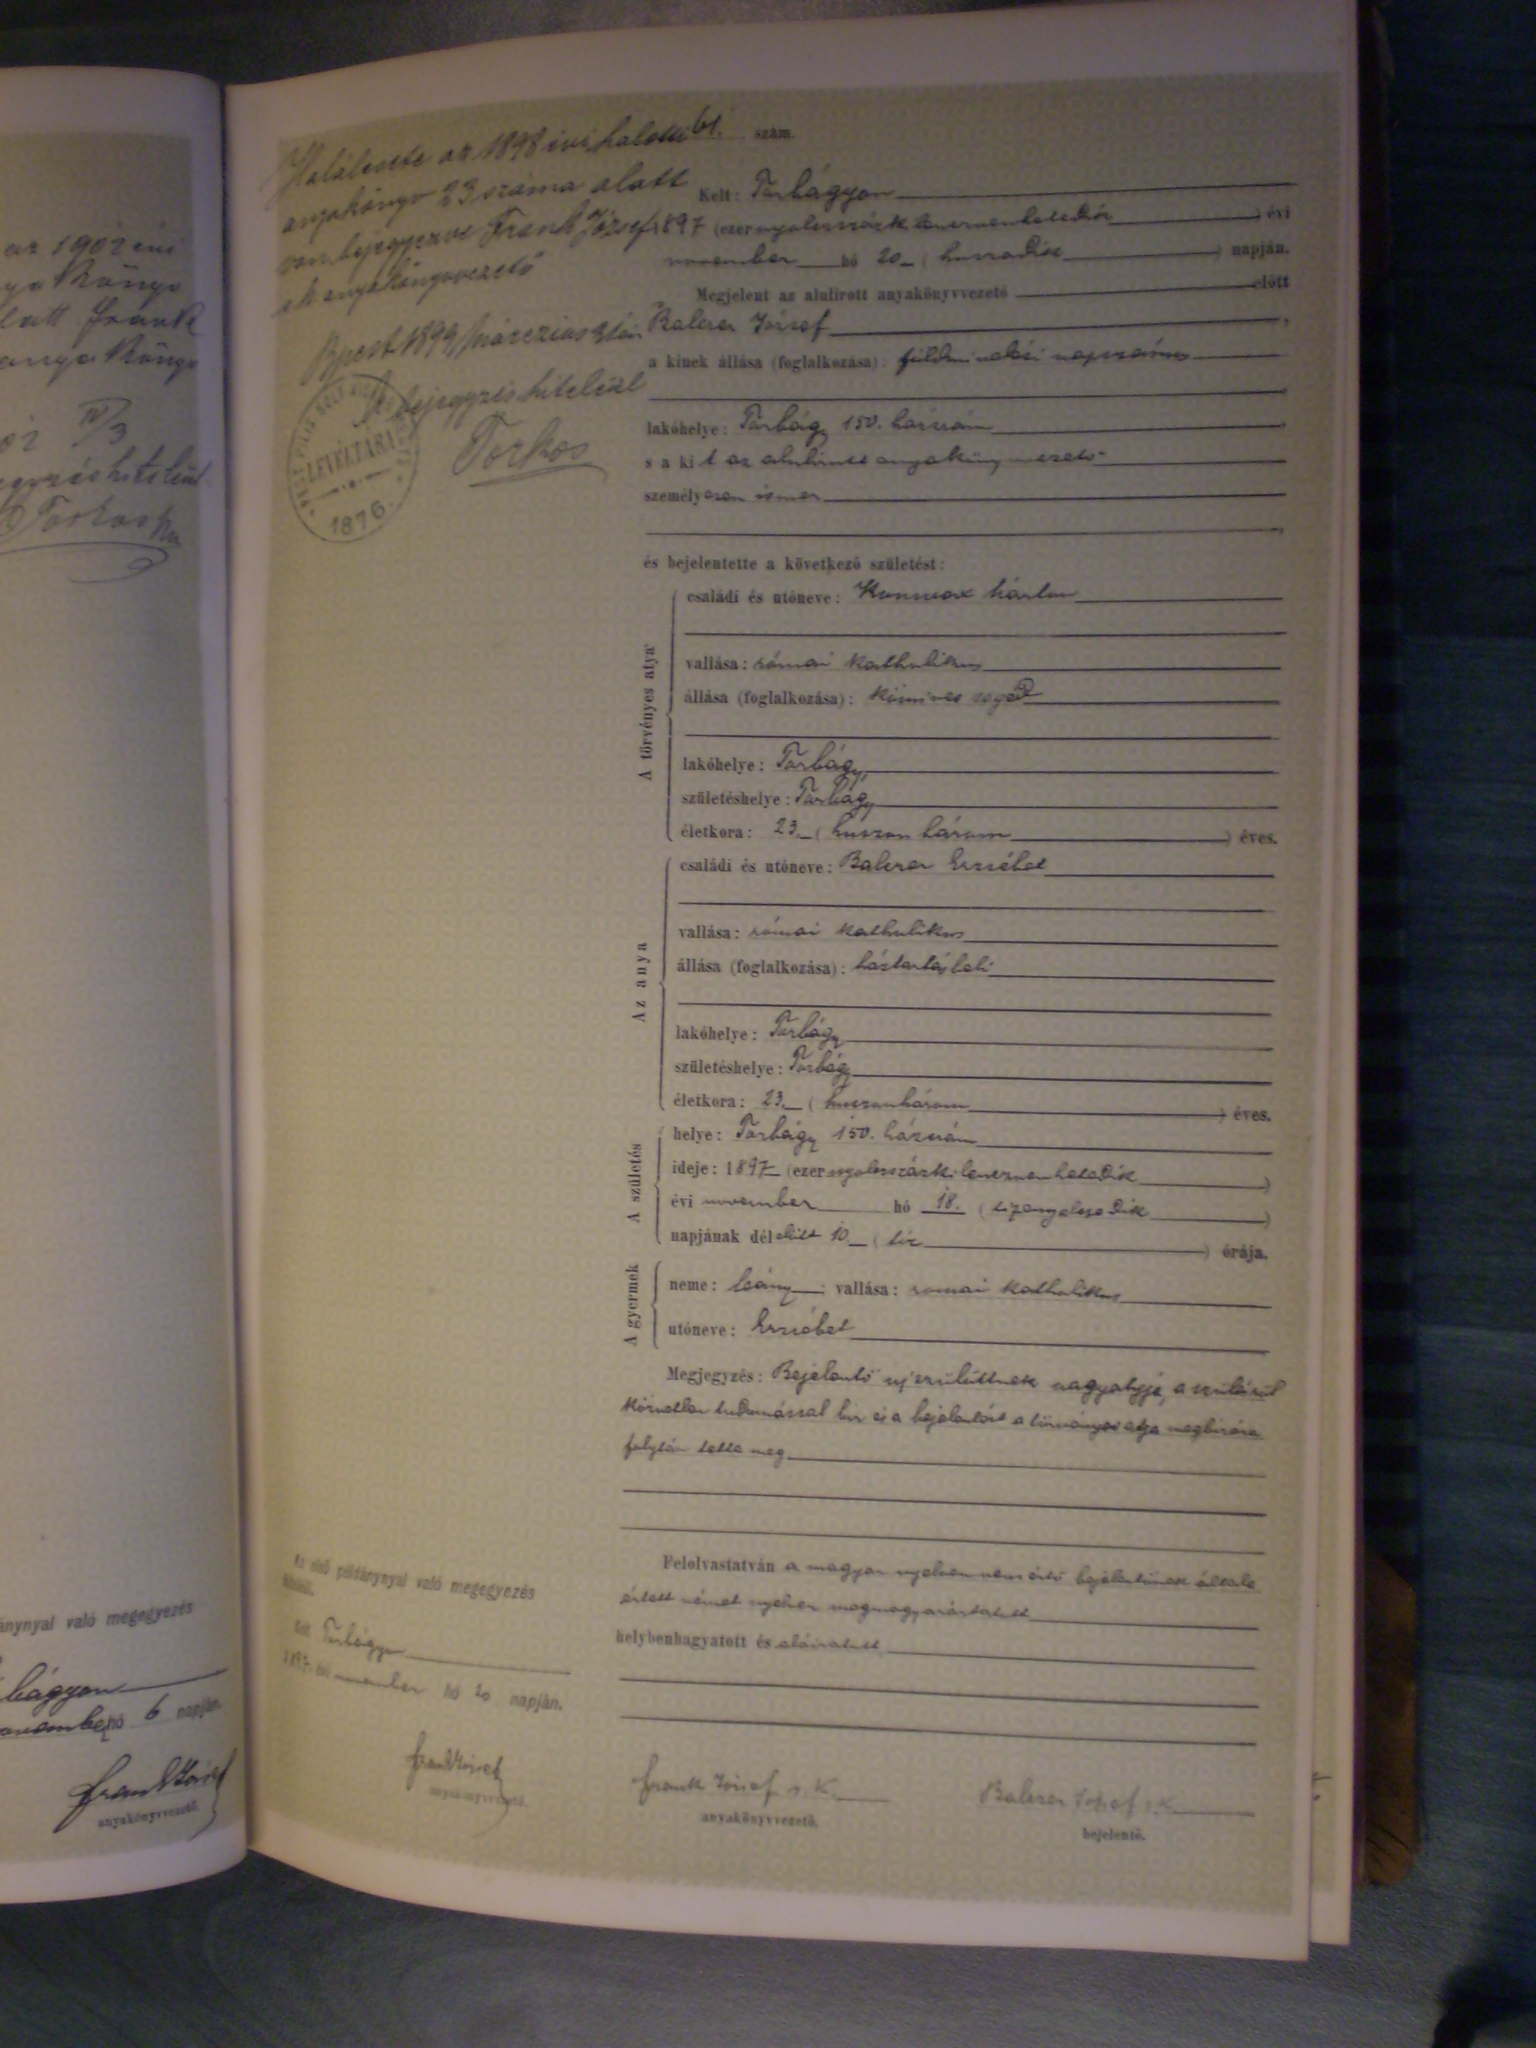 az 1902 évi
Frank
Torkos
ánynyal való megegyezés
bágyon
hó 6 napján.
Frank József
anyakönyvvezető.
Halálesete az 1898 évi halotti
anyakönyv 23 száma alatt
van bejegyezve Frank József
anyakönyvvezető
Bpest 1899 márczius
A bejegyzés hiteléül
Torkos
LEVÉLTÁRA
1876.
61. szám.
Kelt: Torbágyon
1897 (ezernyolcszázkilencvenhetedik) évi
november hó 20 (huszadik) napján.
Megjelent az alulirott anyakönyvvezető előtt
Balczer József,
a kinek állása (foglalkozása): földmivelési napszámos
lakóhelye: Torbágy 150. házszám
s a kit az alulirott anyakönyvvezető
személyesen ismer
és bejelentette a következő születést:
A törvényes atya
családi és utóneve: Márton
vallása: római katholikus
állása (foglalkozása): kőmives segéd
lakóhelye: Torbágy,
születéshelye: Torbágy
életkora: 23 (huszonhárom) éves.
Az anya
családi és utóneve: Balczer Erzsébet
vallása: római katholikus
állása (foglalkozása): háztartásbeli
lakóhelye: Torbágy
születéshelye: Torbágy
életkora: 23. (huszonhárom) éves.
A születés
helye: Torbágy 150. házszám
ideje: 1897 (ezernyolcszázkilencvenhetedik)
évi november hó 18. (tizennyolcadik)
napjának délelőtt 10 (tíz) órája.
A gyermek
neme: leány; vallása: romai katholikus
utóneve: Erzsébet
Megjegyzés: Bejelentő ujszülöttnek nagyatyja, a szülésről
közvetlen tudomással bir és a bejelentést a törvényes atya megbizása
folytán tette meg
Felolvastatván a magyar nyelven nem értő bejelentőnek általa
értett német nyelven megmagyaráztatott
helybenhagyatott és aláiratott
Az első példánynyal való megegyezés
hiteléül.
Kelt Torbágyon
1897. évi november hó 20 napján.
Frank József
anyakönyvvezető.
Frank József s. k.
anyakönyvvezető.
Balczer József s. k.
bejelentő.